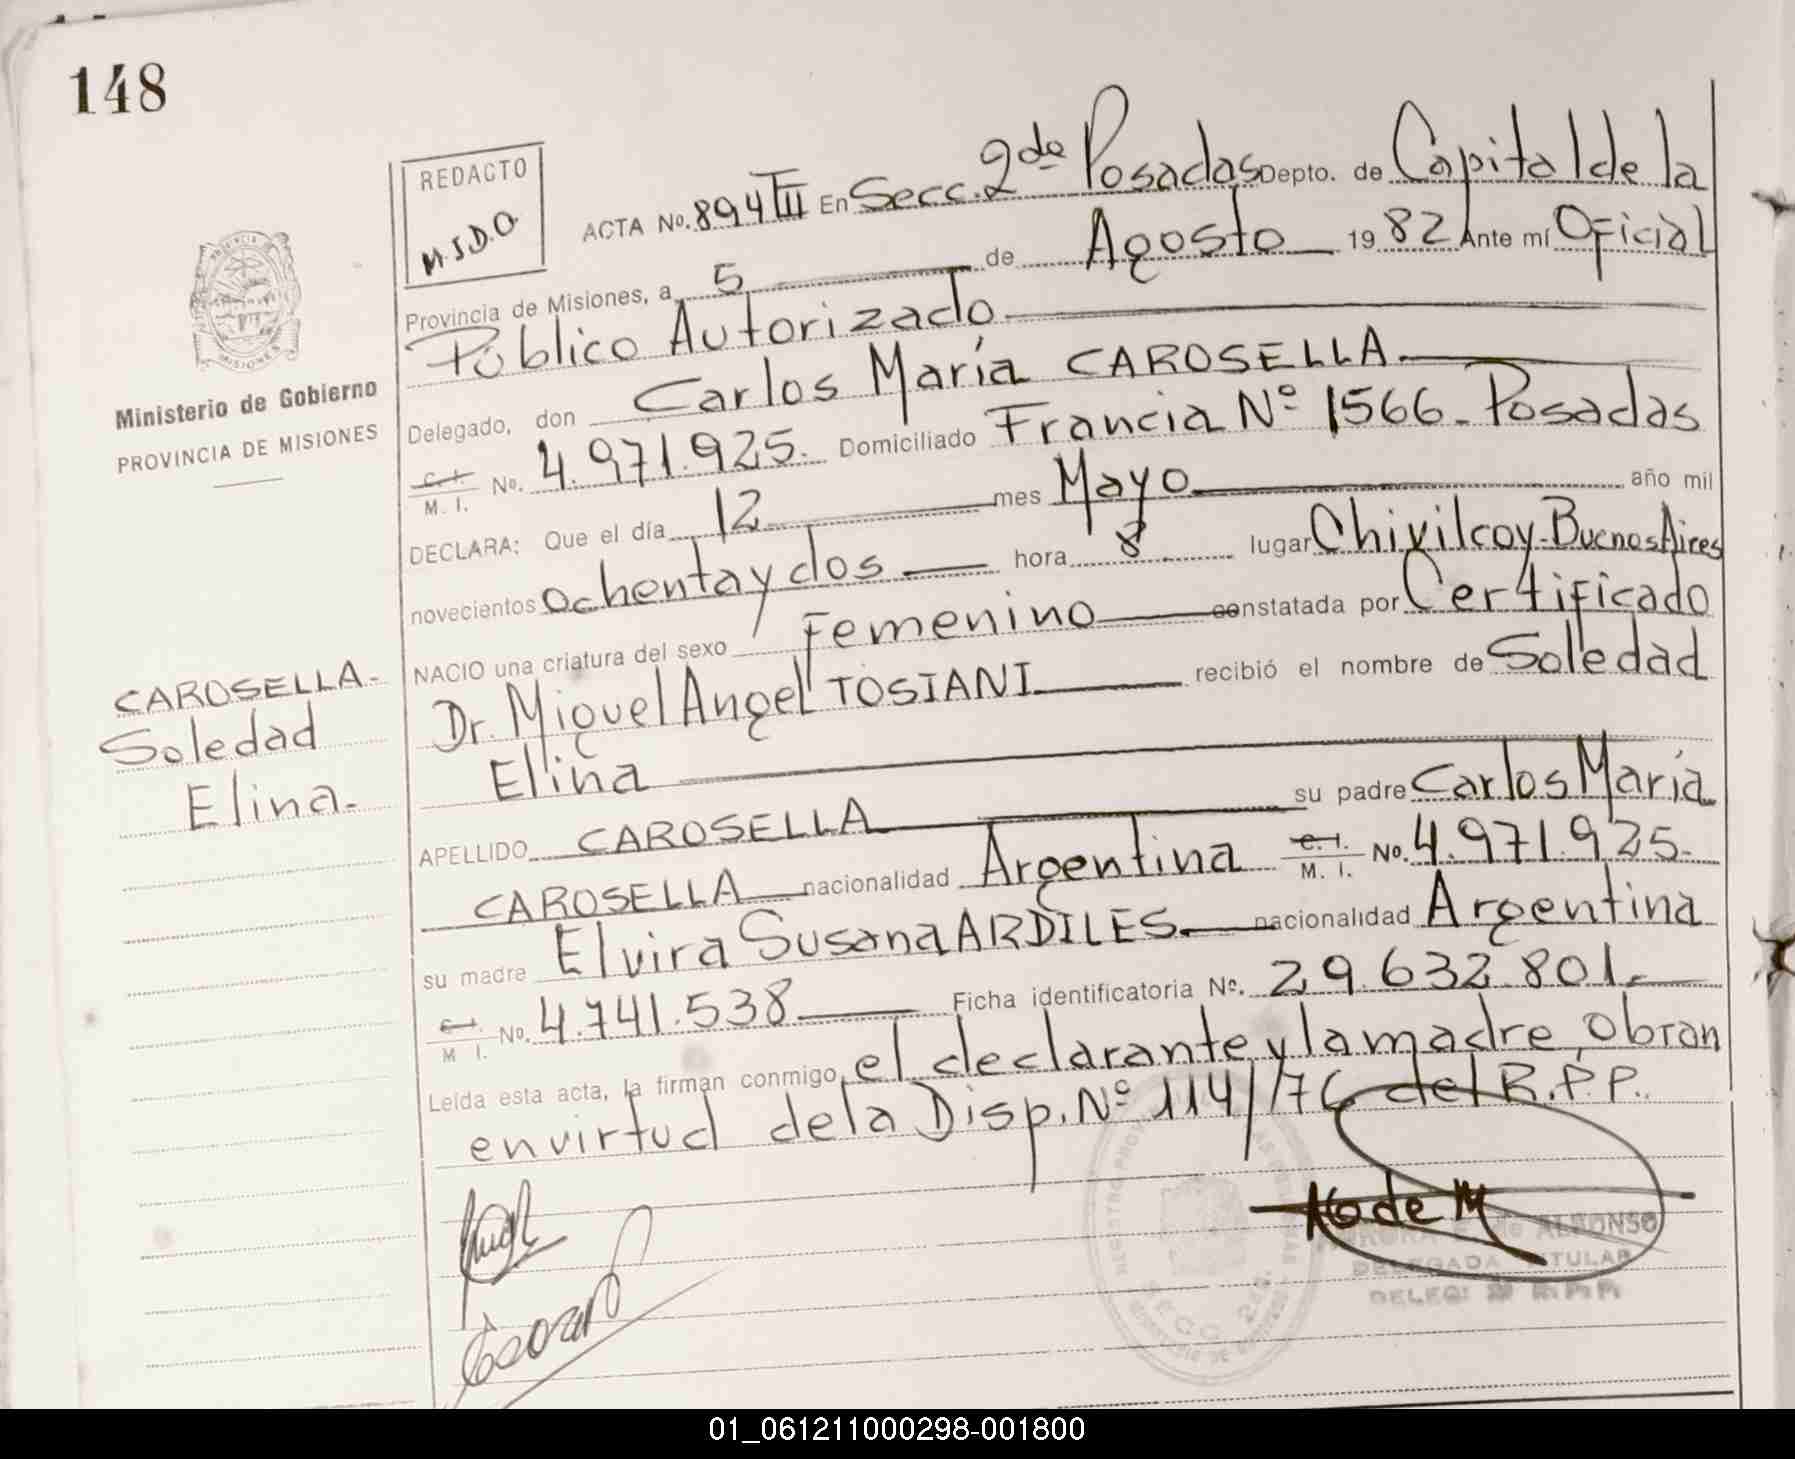 148
REDACTO
M.S.D.O
ACTA No. 894 TIII En Secc. 2da Posadas Depto. de Capital de la
Provincia de Misiones, a 5 de Agosto 1982 Ante mí Oficial
Público Autorizado
Delegado, don Carlos María CAROSELLA
C. I. M. I. No. 4.971.925. Domiciliado Francia Nº 1566 - Posadas
DECLARA: Que el día 12 mes Mayo año mil
novecientos ochenta y dos hora 8 lugar Chivilcoy-Buenos Aires
NACIO una criatura del sexo Femenino constatada por Certificado
Dr. Miguel Angel TOSIANI recibió el nombre de Soledad
Elina
APELLIDO CAROSELLA su padre Carlos María
CAROSELLA nacionalidad Argentina C. I. M. I. No. 4.971.925.
su madre Elvira Susana ARDILES nacionalidad Argentina
M I. No. 4.741.538 Ficha identificatoria Nº. 29.632.801.-
Leída esta acta, la firman conmigo, el declarante y la madre, obran
en virtud de la Disp. Nº 114/76 del R.P.P..
PROVINCIA
MISIONES
Ministerio de Gobierno
PROVINCIA DE MISIONES
CAROSELLA.-
Soledad
Elina.-
ALFONSO
DELEGADA TITULAR
SECC. 2da.
01_061211000298-001800